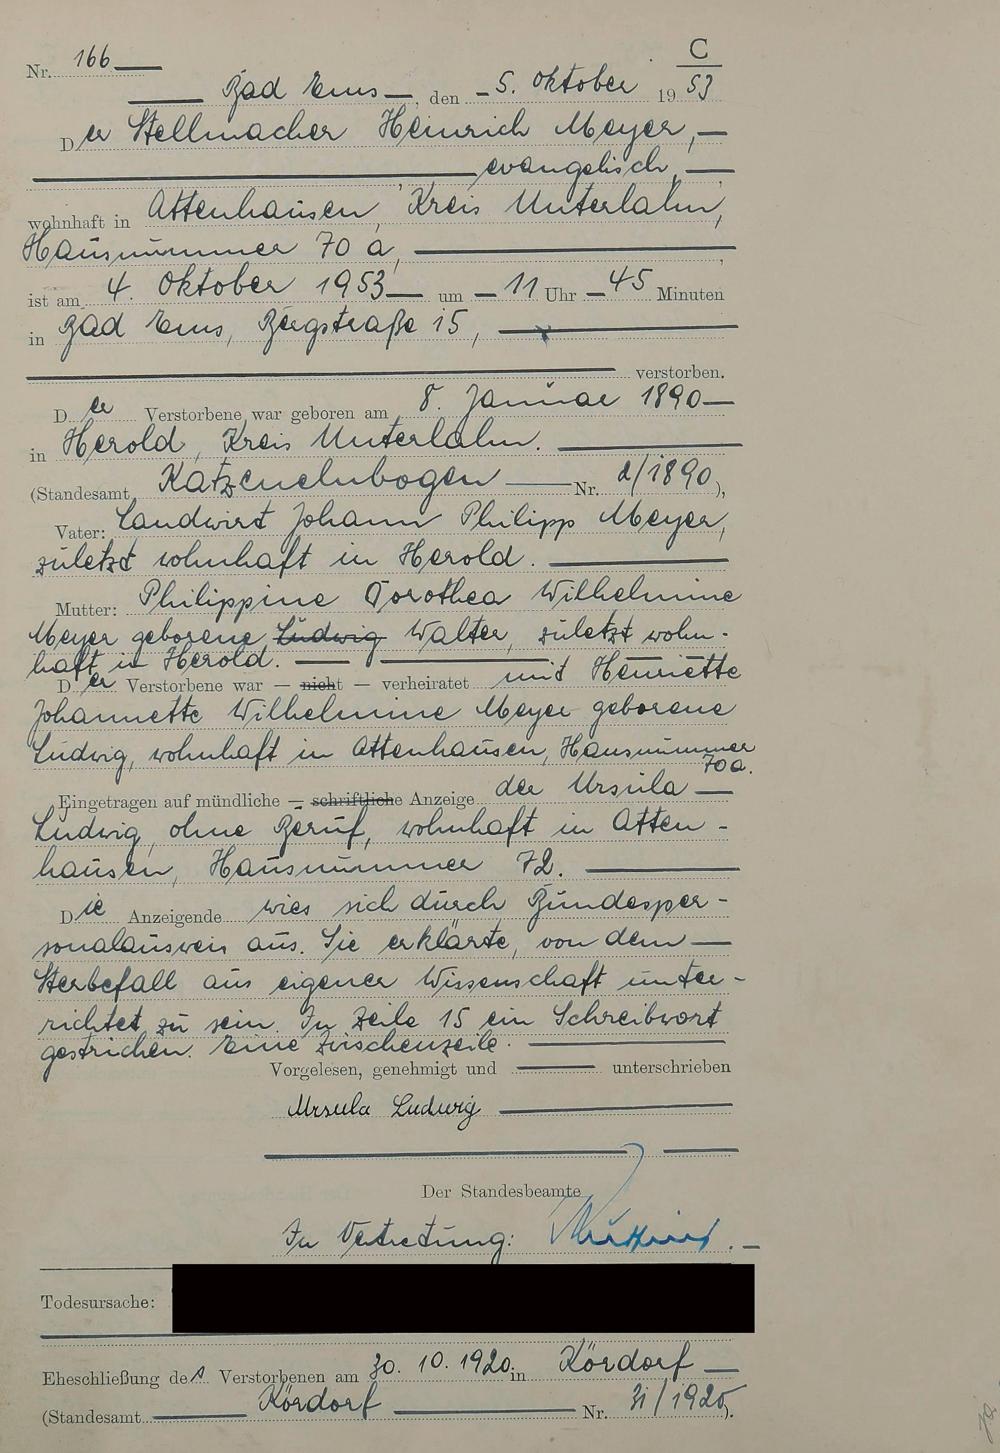 C
Nr. 166
Bad Ems, den 5. Oktober 19 53
Der Stellmacher Heinrich Meyer,
evangelisch,
wohnhaft in Attenhausen, Kreis Unterlahn,
Hausnummer 70 a,
ist am 4. Oktober 1953 um 11 Uhr 45 Minuten
in Bad Ems, Bergstraße 15,
verstorben.
Der Verstorbene war geboren am 8. Januar 1890
in Herold, Kreis Unterlahn.
(Standesamt Katzenelnbogen Nr. 2/1890),
Vater: Landwirt Johann Philipp Meyer,
zuletzt wohnhaft in Herold.
Mutter: Philippine Dorothea Wilhelmine
Meyer geborene Ludwig Walter, zuletzt wohn-
haft in Herold.
Der Verstorbene war — nicht — verheiratet mit Henriette
Johannette Wilhelmine Meyer geborene
Ludwig, wohnhaft in Attenhausen, Hausnummer
70a.
Eingetragen auf mündliche — schriftliche Anzeige der Ursula
Ludwig, ohne Beruf, wohnhaft in Atten-
hausen, Hausnummer 72.
Die Anzeigende wies sich durch Bundesper-
sonalausweis aus. Sie erklärte, von dem
Sterbefall aus eigener Wissenschaft unter-
richtet zu sein. In Zeile 15 ein Schreibwort
gestrichen. Eine Zwischenzeile.
Vorgelesen, genehmigt und unterschrieben
Ursula Ludwig
Der Standesbeamte
In Vertretung:
Todesursache:
Eheschließung des Verstorbenen am 30. 10. 1920 in Kördorf
(Standesamt Kördorf Nr. 31/1920).